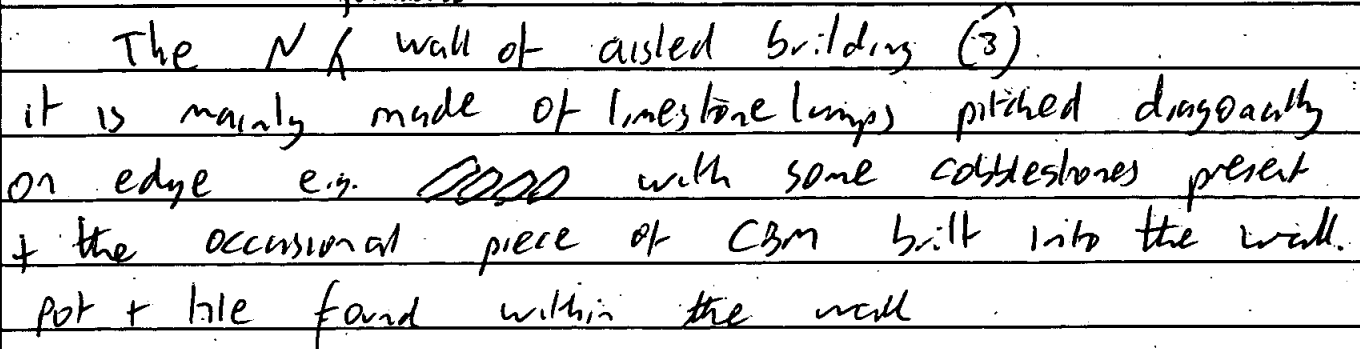 The N wall of aisled building (3)
it is mainly made of limestone lumps pitched diagonally
on edge e.g. with some cobblestones present
+ the occasional piece of CBM built into the wall.
pot + tile found within the wall